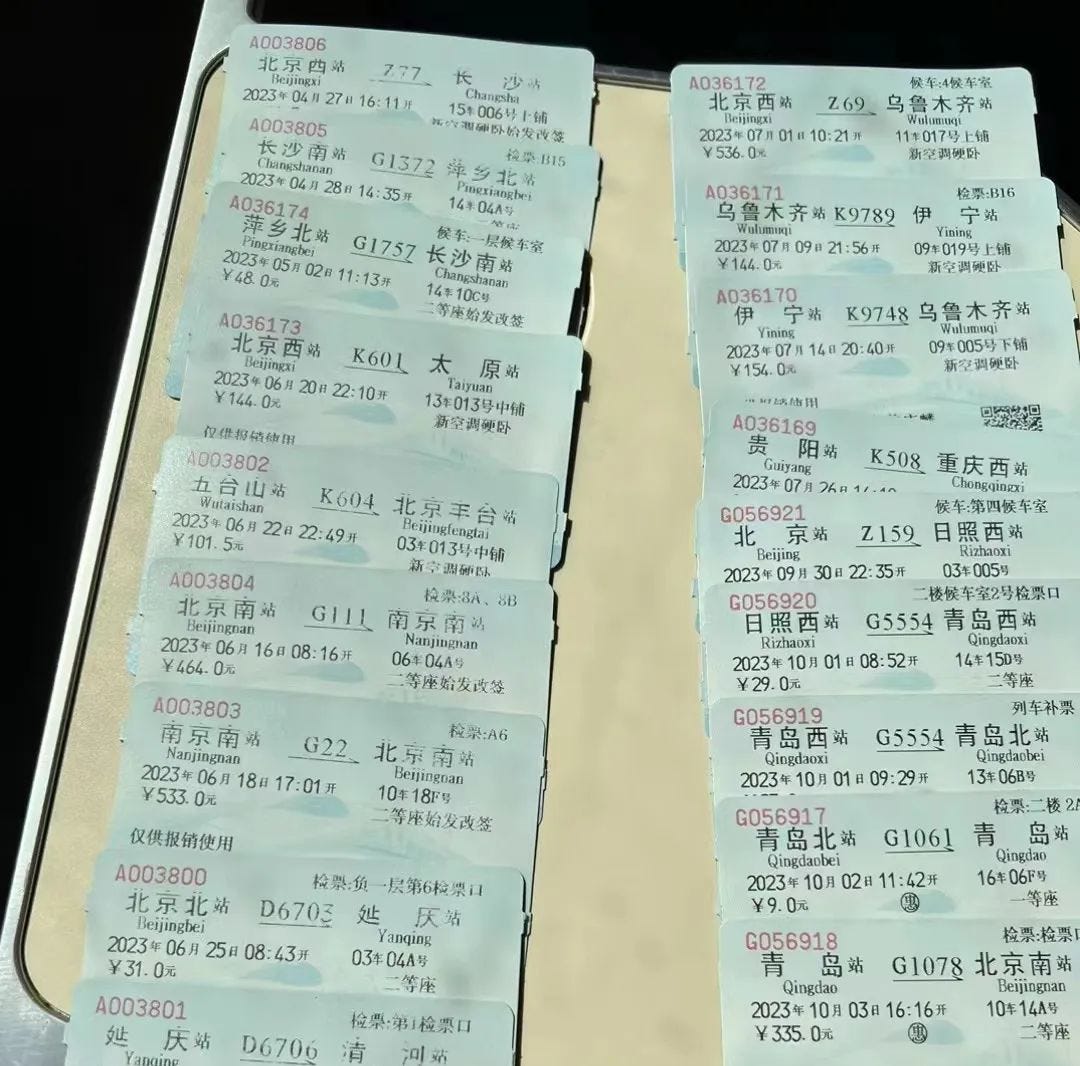 A003806
北京西站 Z77 长沙站
Beijingxi Changsha
2023年04月27日16:11开 15车006号上铺
新空调硬卧始发改签
A003805 检票:B15
长沙南站 G1372 萍乡北站
Changshanan Pingxiangbei
2023年04月28日14:35开 14车04A号
二等座
A036174 候车:一层候车室
萍乡北站 G1757 长沙南站
Pingxiangbei Changshanan
2023年05月02日11:13开 14车10C号
￥48.0元 二等座始发改签
A036173
北京西站 K601 太原站
Beijingxi Taiyuan
2023年06月20日22:10开 13车013号中铺
￥144.0元 新空调硬卧
仅供报销使用
A003802
五台山站 K604 北京丰台站
Wutaishan Beijingfengtai
2023年06月22日22:49开 03车013号中铺
￥101.5元 新空调硬卧
A003804 检票:8A、8B
北京南站 G111 南京南站
Beijingnan Nanjingnan
2023年06月16日08:16开 06车04A号
￥464.0元 二等座始发改签
A003803 检票:A6
南京南站 G22 北京南站
Nanjingnan Beijingnan
2023年06月18日17:01开 10车18F号
￥533.0元 二等座始发改签
仅供报销使用
A003800 检票:负一层第6检票口
北京北站 D6703 延庆站
Beijingbei Yanqing
2023年06月25日08:43开 03车04A号
￥31.0元 二等座
A003801 检票:第1检票口
延庆站 D6706 清河站
Yanqing
A036172 候车:4候车室
北京西站 Z69 乌鲁木齐站
Beijingxi Wulumuqi
2023年07月01日10:21开 11车017号上铺
￥536.0元 新空调硬卧
A036171 检票:B16
乌鲁木齐站 K9789 伊宁站
Wulumuqi Yining
2023年07月09日21:56开 09车019号上铺
￥144.0元 新空调硬卧
A036170
伊宁站 K9748 乌鲁木齐站
Yining Wulumuqi
2023年07月14日20:40开 09车005号下铺
￥154.0元 新空调硬卧
A036169
贵阳站 K508 重庆西站
Guiyang Chongqingxi
2023年07月26日
G056921 候车:第四候车室
北京站 Z159 日照西站
Beijing Rizhaoxi
2023年09月30日22:35开 03车005号
G056920 二楼候车室2号检票口
日照西站 G5554 青岛西站
Rizhaoxi Qingdaoxi
2023年10月01日08:52开 14车15D号
￥29.0元 二等座
G056919 列车补票
青岛西站 G5554 青岛北站
Qingdaoxi Qingdaobei
2023年10月01日09:29开 13车06B号
G056917 检票:二楼 2A
青岛北站 G1061 青岛站
Qingdaobei Qingdao
2023年10月02日11:42开 16车06F号
￥9.0元 惠 一等座
G056918 检票:检票口
青岛站 G1078 北京南站
Qingdao Beijingnan
2023年10月03日16:16开 10车14A号
￥335.0元 惠 二等座